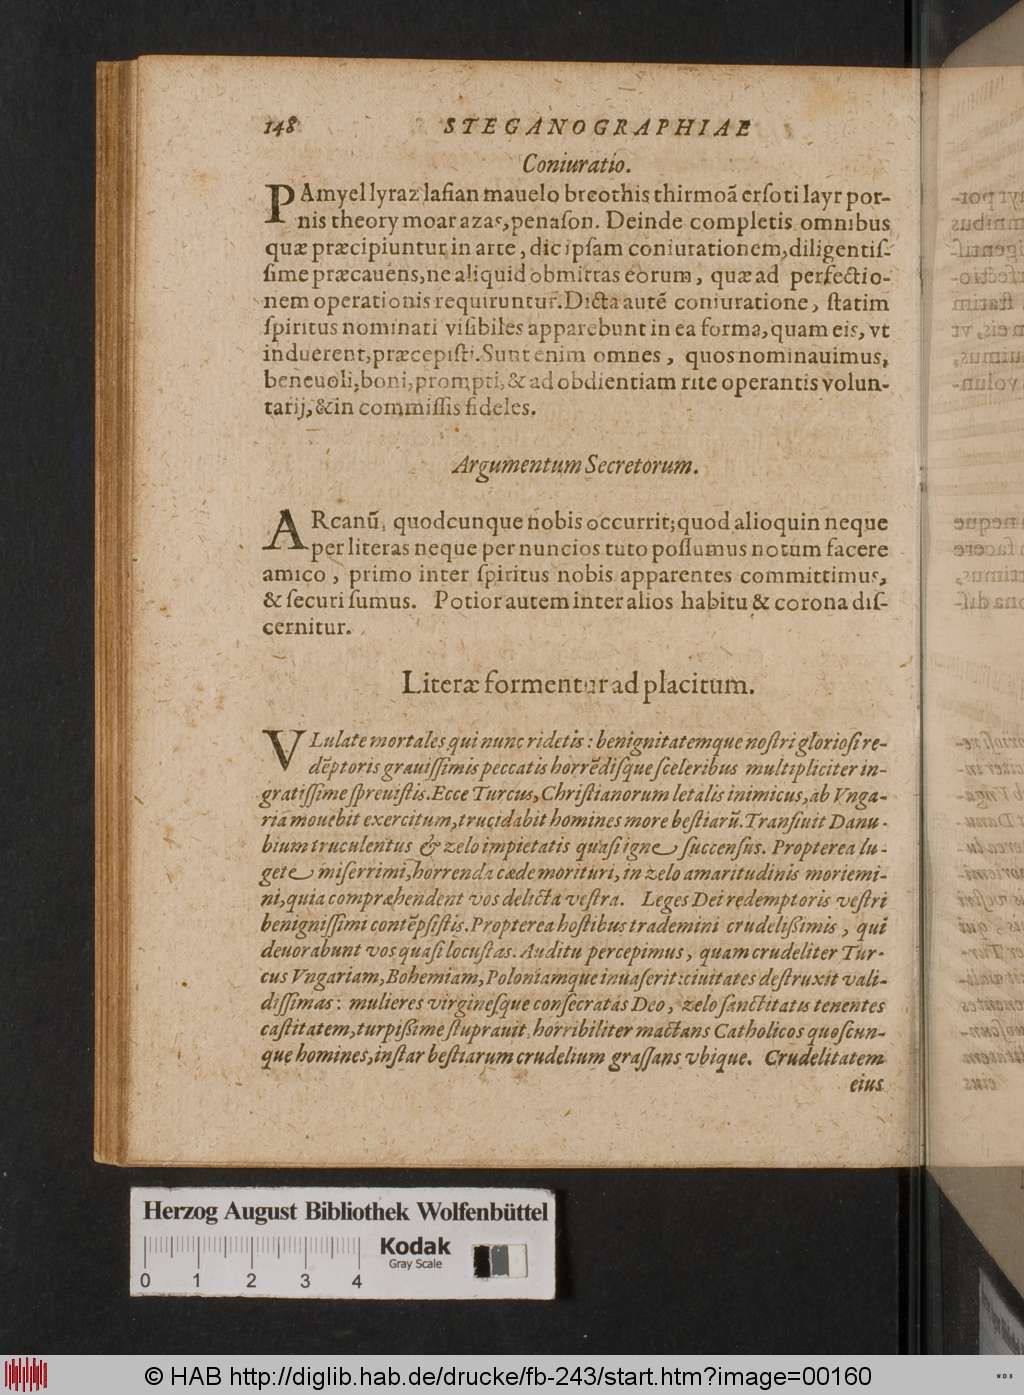 148 STEGANOGRAPHIAE
Coniuratio.
PAmyel lyraz lasian mauelo breothis thirmoã ersoti layr por-
nis theory moar azas, penason. Deinde completis omnibus
quæ præcipiuntur in arte, dic ipsam coniurationem, diligentis-
sime præcauens, ne aliquid obmittas eorum, quæ ad perfectio-
nem operationis requiruntur. Dicta autẽ coniuratione, statim
spiritus nominati visibiles apparebunt in ea forma, quam eis, vt
induerent, præcepisti. Sunt enim omnes, quos nominauimus,
beneuoli, boni, prompti, & ad obdientiam rite operantis volun-
tarij, & in commissis fideles.
Argumentum Secretorum.
ARcanũ, quodcunque nobis occurrit; quod alioquin neque
per literas neque per nuncios tuto possumus notum facere
amico, primo inter spiritus nobis apparentes committimus,
& securi sumus. Potior autem inter alios habitu & corona dis-
cernitur.
Literæ formentur ad placitum.
VLulate mortales qui nunc ridetis: benignitatemque nostri gloriosi re-
dẽptoris grauissimis peccatis horrẽdisque sceleribus multipliciter in-
gratissime spreuistis. Ecce Turcus, Christianorum letalis inimicus, ab Vnga-
ria mouebit exercitum, trucidabit homines more bestiarũ. Transiuit Danu-
bium truculentus & zelo impietatis quasi igne succensus. Propterea lu-
gete miserrimi, horrenda cæde morituri, in zelo amaritudinis moriemi-
ni, quia compræhendent vos delicta vestra. Leges Dei redemptoris vestri
benignissimi contẽpsistis. Propterea hostibus trademini crudelissimis, qui
deuorabunt vos quasi locustas. Auditu percepimus, quam crudeliter Tur-
cus Vngariam, Bohemiam, Poloniamque inuaserit: ciuitates destruxit vali-
dissimas: mulieres virginesque consecratas Deo, zelo sanctitatis tenentes
castitatem, turpissime stuprauit, horribiliter mactans Catholicos quoscun-
que homines, instar bestiarum crudelium grassans vbique. Crudelitatem
eius
Herzog August Bibliothek Wolfenbüttel
Kodak
Gray Scale
0 1 2 3 4
© HAB http://diglib.hab.de/drucke/fb-243/start.htm?image=00160